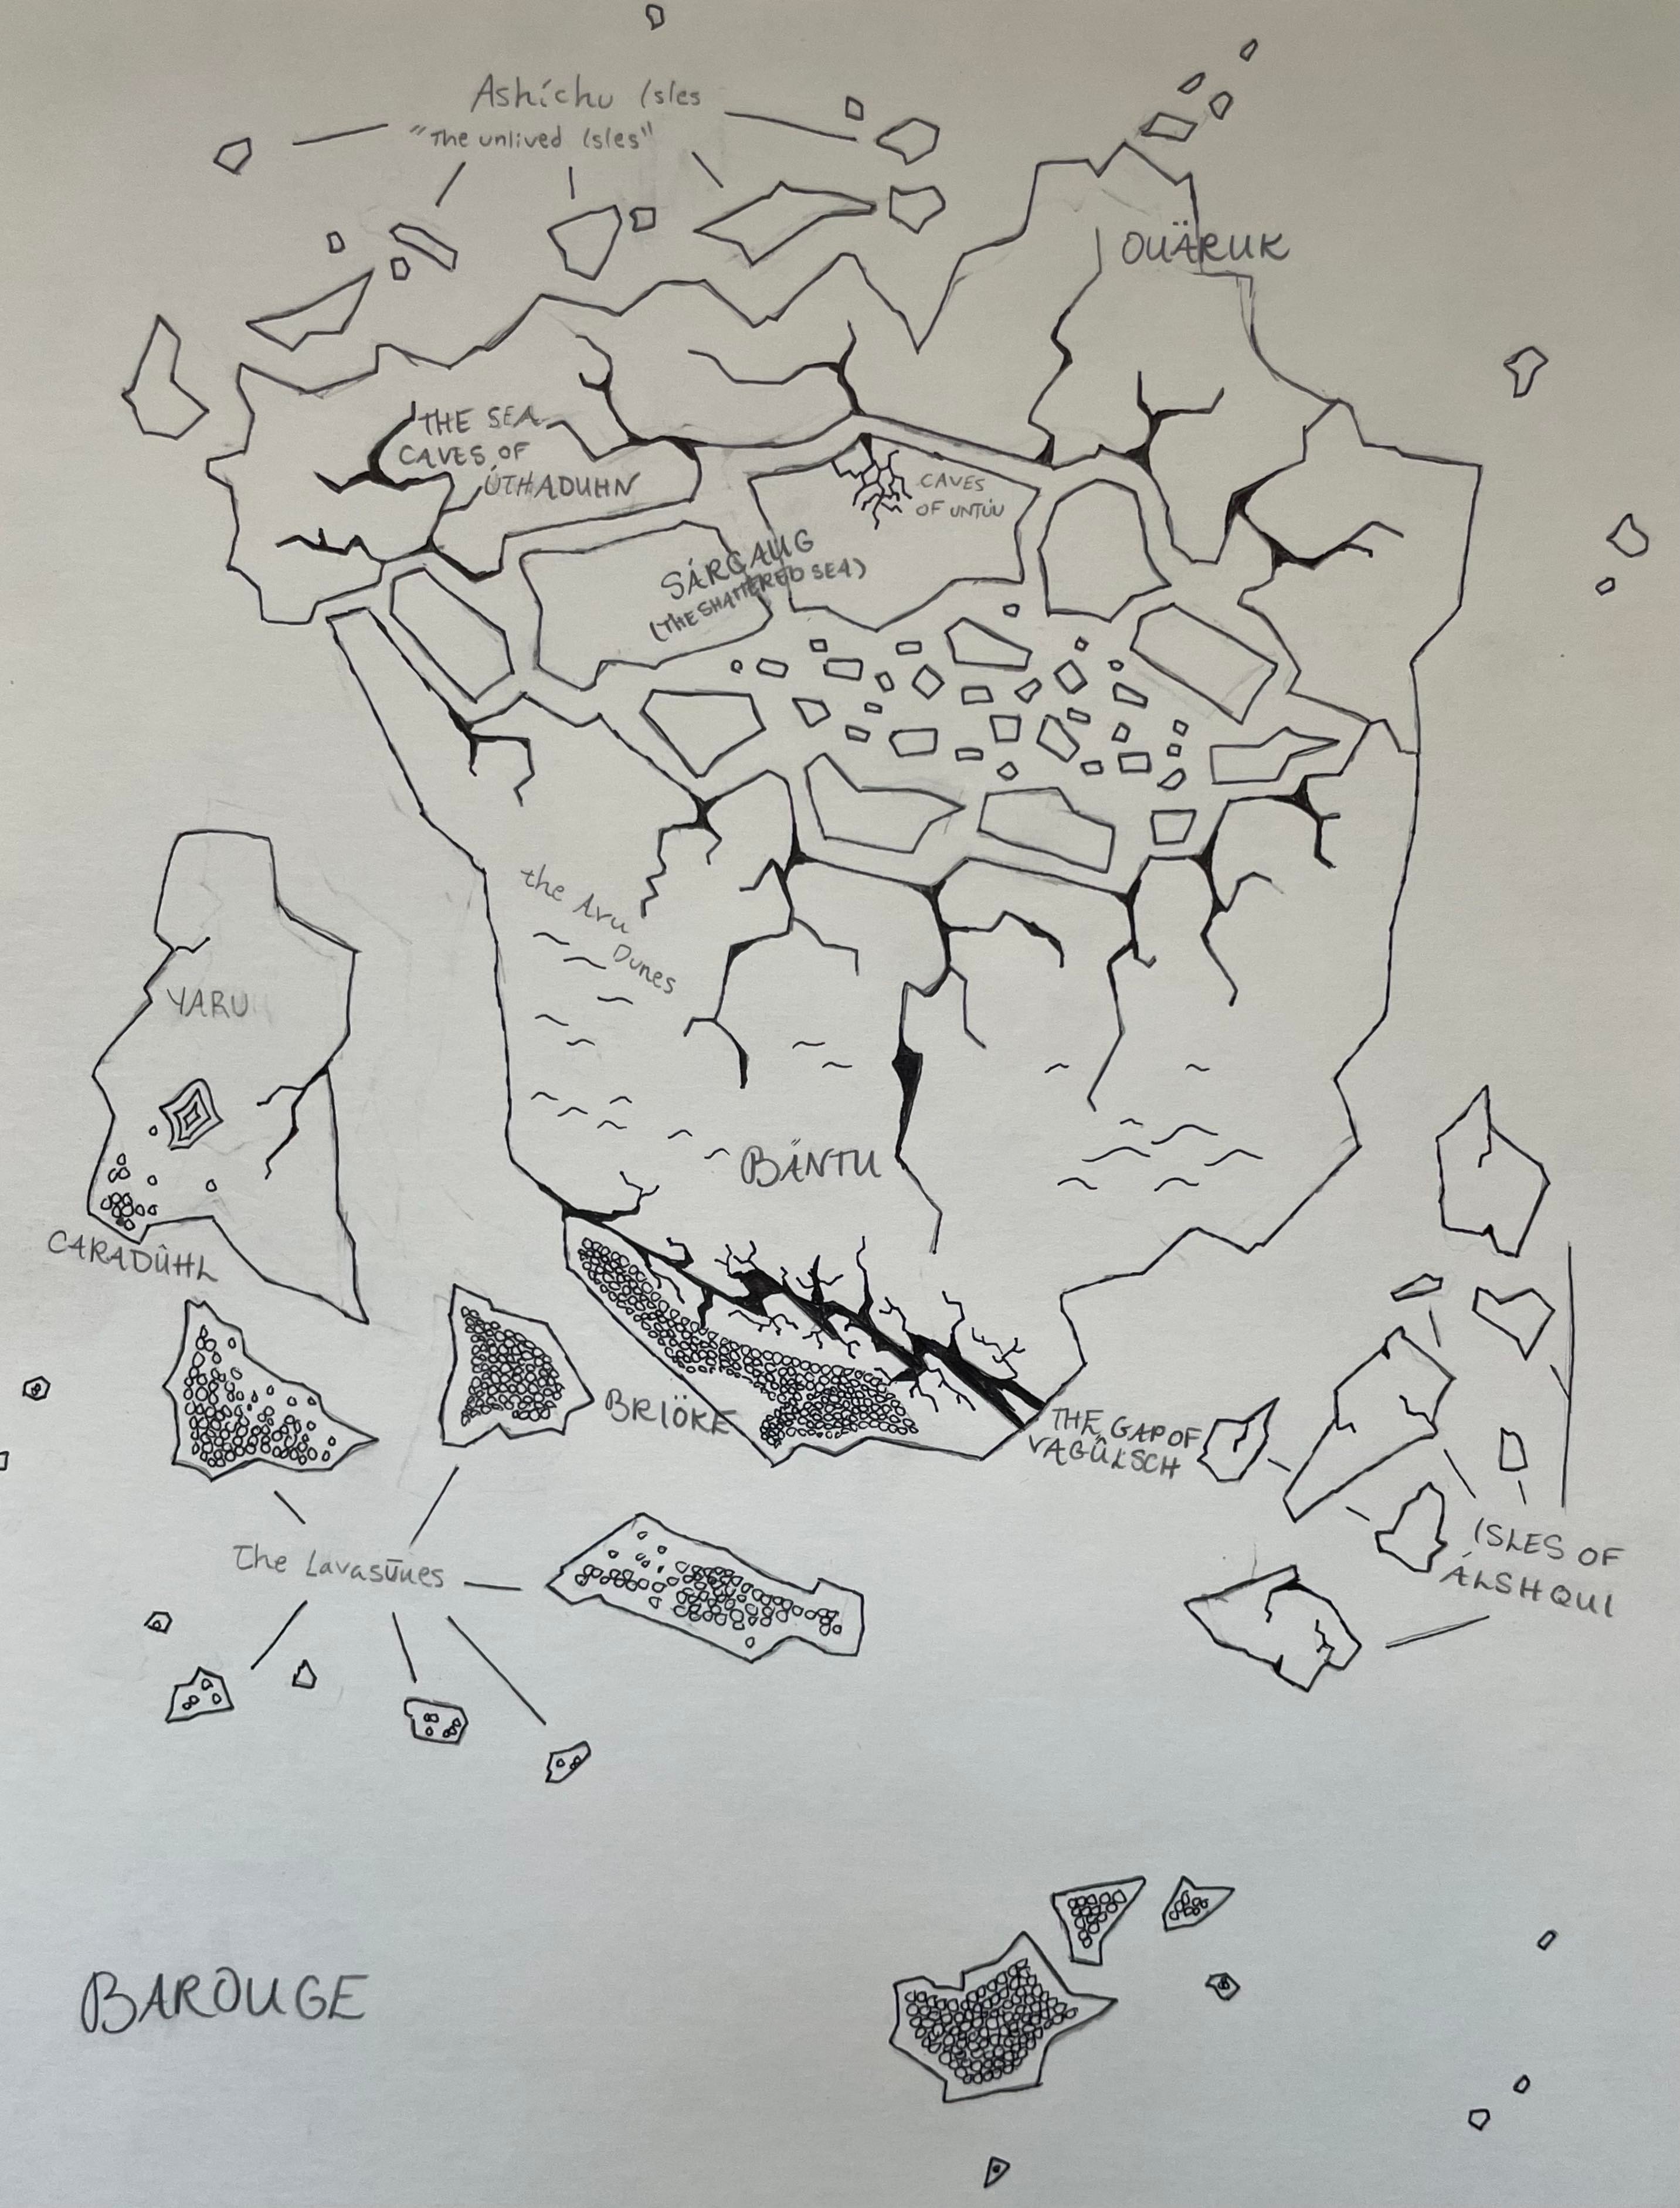 Ashíchu Isles
"The unlived Isles"
OUÄRUK
THE SEA
CAVES OF
ÚTHADUHN
CAVES
OF UNTÚU
SÁRGAUG
(THE SHATTERED SEA)
the Aru
Dunes
YARU
BÄNTU
CARADÛHL
BRIÖKE
THE GAP OF
VAGÛLSCH
ISLES OF
ÁLSHQUI
The Lavasūnes
BAROUGE